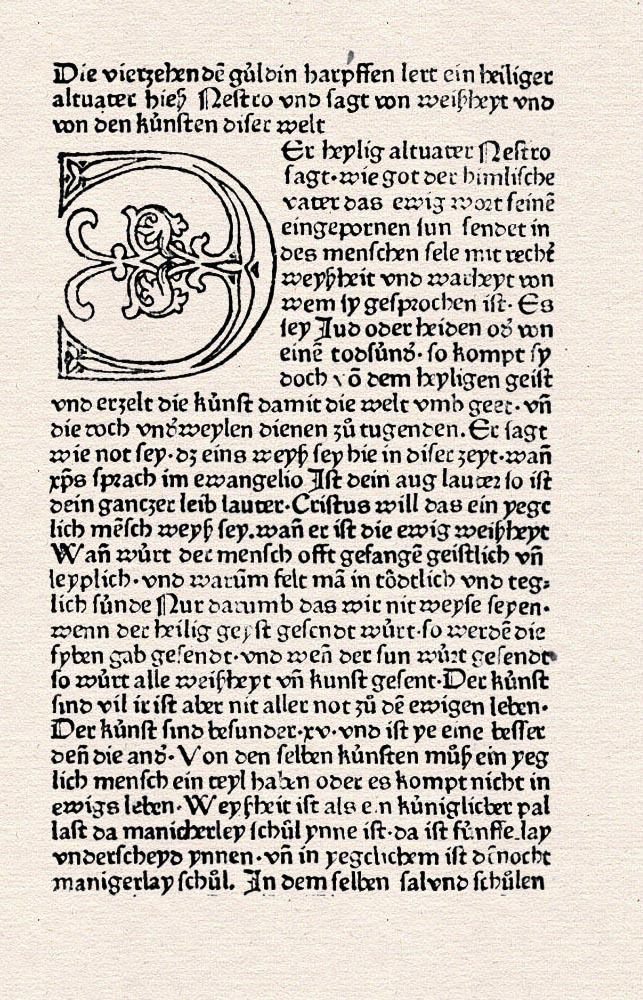 Die vierzehendē gůldin harpffen lert ein heiliger
altuater hieß Nestro vnd sagt von weißheyt vnd
von den kůnsten diser welt
Er heylig altuater Nestro
sagt·wie got der himlische
vater das ewig wort seinē
eingepornen sun sendet in
des menschen sele mit recht
weyßheit vnd warheyt von
wem sy gesprochen ist· Es
sey Jud oder heiden od̕ von
einē todsůnd̕· so kompt sy
doch vō dem heyligen geist
vnd erzelt die kůnst damit die welt vmb geet·vn̄
die doch vnd̕weylen dienen zů tugenden. Er sagt
wie not sey·dz eins weyß sey hie in diser zeyt·wan̄
xp̄s sprach im ewangelio Ist dein aug lauter so ist
dein ganczer leib lauter·Cristus will das ein yege
lich mēsch weyß sey.wan̄ er ist die ewig weißheyt
Wan̄ wůrt der mensch offt gefangē geistlich vn̄
leyplich·vnd warům felt mā in tödtlich vnd teg⸗
lich sůnde Nur darumb das wir nit weyse seyen·
wenn der heilig geyst gesendt wůrt·so werdē die
syben gab gesendt·vnd wen̄ der sun wůrt gesendt
so wůrt alle weißheyt vn̄ kunst gesent·Der kůnst
sind vil ir ist aber nit aller not zů dē ewigen leben·
Der kůnst sind besunder·xv·vnd ist ye eine besser
den̄ die and̕·Von den selben kůnsten můß ein yeg
lich mensch ein teyl haben oder es kompt nicht in
ewigs leben·Weyßheit ist als ein kůniglicher pal
last da manicherley schůl ynne ist·da ist fůnffe lay
vnderscheyd ynnen·vn̄ in yegclichem ist dēnocht
manigerlay schůl. In dem selben sal vnd schůlen